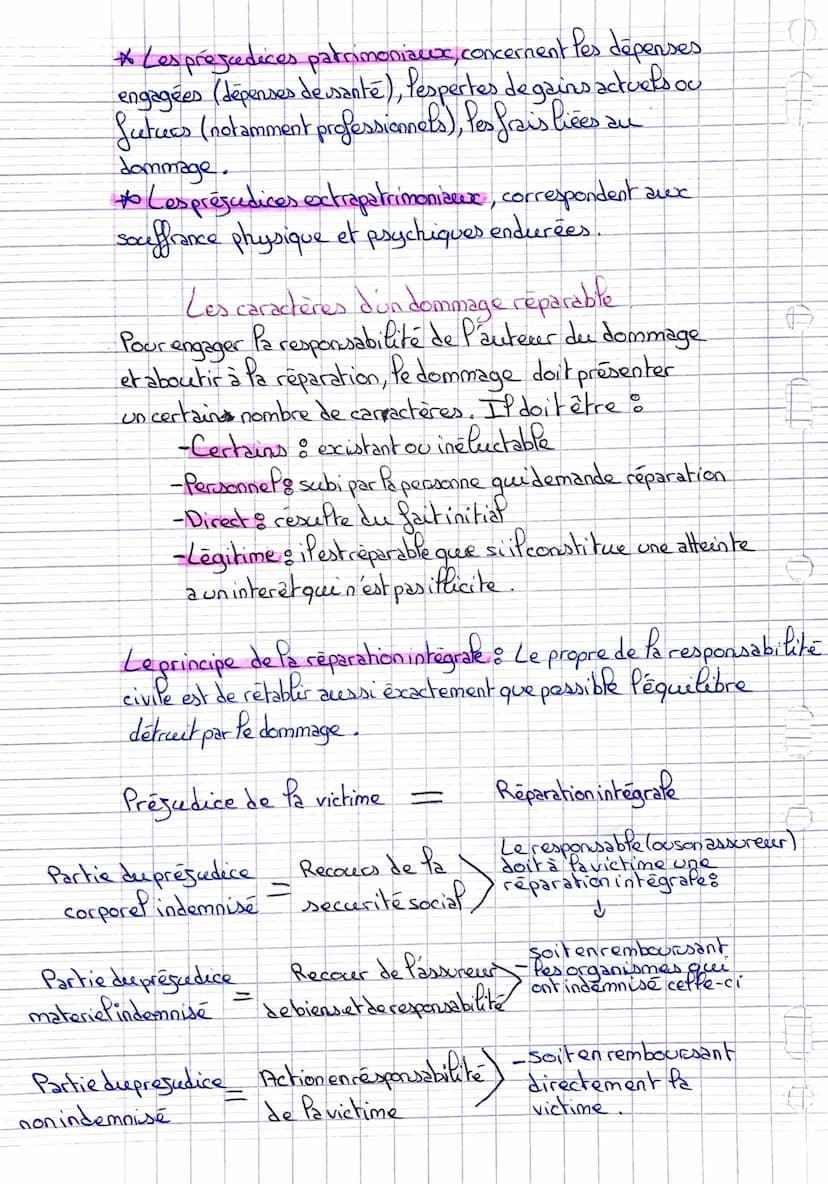 * Les préjudices patrimoniaux, concernent les dépenses
engagées (dépenses de santé), les pertes de gains actuels ou
futurs (notamment professionnels), les frais liées au
dommage.
* Les préjudices extrapatrimoniaux, correspondent aux
souffrance physique et psychiques endurées.
Les caractères d'un dommage réparable
Pour engager la responsabilité de l'auteur du dommage
et aboutir à la réparation, le dommage doit présenter
un certains nombre de carractères. Il doit être :
-Certains : existant ou inéluctable
-Personnel : subi par la personne qui demande réparation
-Direct : résulte du fait initial
-Légitime : il est réparable que si il constitue une atteinte
a un interêt qui n'est pas illicite.
Le principe de la réparation intégrale : Le propre de la responsabilité
civile est de rétablir aussi éxactement que possible l'équilibre
détruit par le dommage.
Préjudice de la victime = Réparation intégrale
Partie du préjudice
corporel indemnisé
=
Recours de la
securité social
Le responsable (ou son assureur)
doit à la victime une
réparation intégrale :
↓
Partie du préjudice
materiel indemnisé
=
Recour de l'assureur
de biens et de responsabilité
soit en remboursant
- les organismes qui
ont indémnisé celle-ci
Partie du prejudice
non indemnisé
=
Action en résponsabilité
de la victime
-soit en remboursant
directement la
victime.